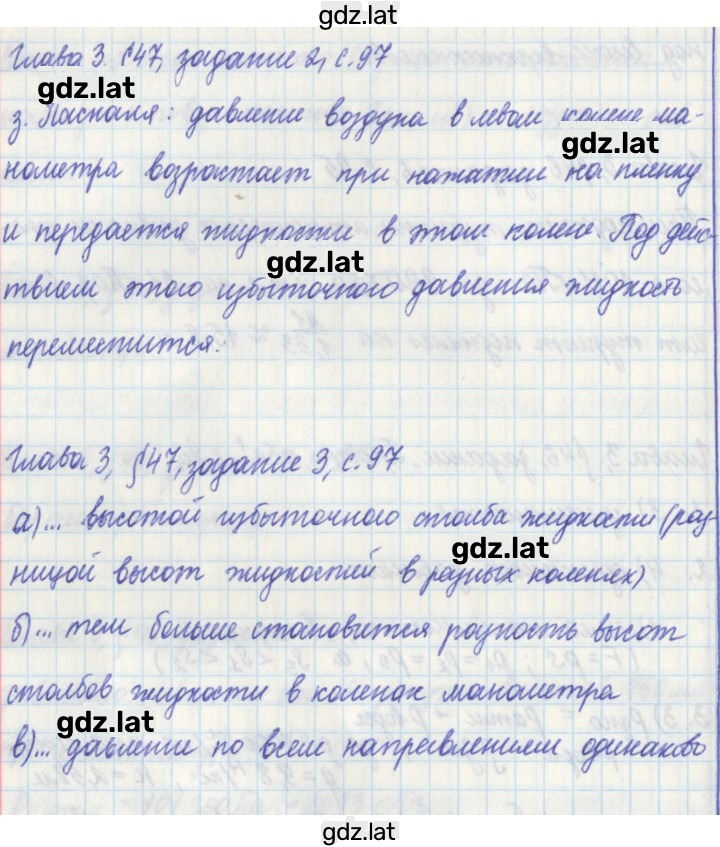 gdz.lat
Глава 3. §47, задание 2, с.97
gdz.lat
з. Паскаля: давление воздуха в левом колене ма-
gdz.lat
нометра возрастает при нажатии на пленку
и передается жидкости в этом колене. Под дейс-
gdz.lat
твием этого избыточного давления жидкость
переместится.
Глава 3, §47, задание 3, с.97
а)... высотой избыточного столба жидкости (раз-
gdz.lat
ницой высот жидкостей в разных коленях)
б)... тем больше становится разность высот
столбов жидкости в коленах манометра
gdz.lat
в)... давление по всем направлениям одинаково
gdz.lat